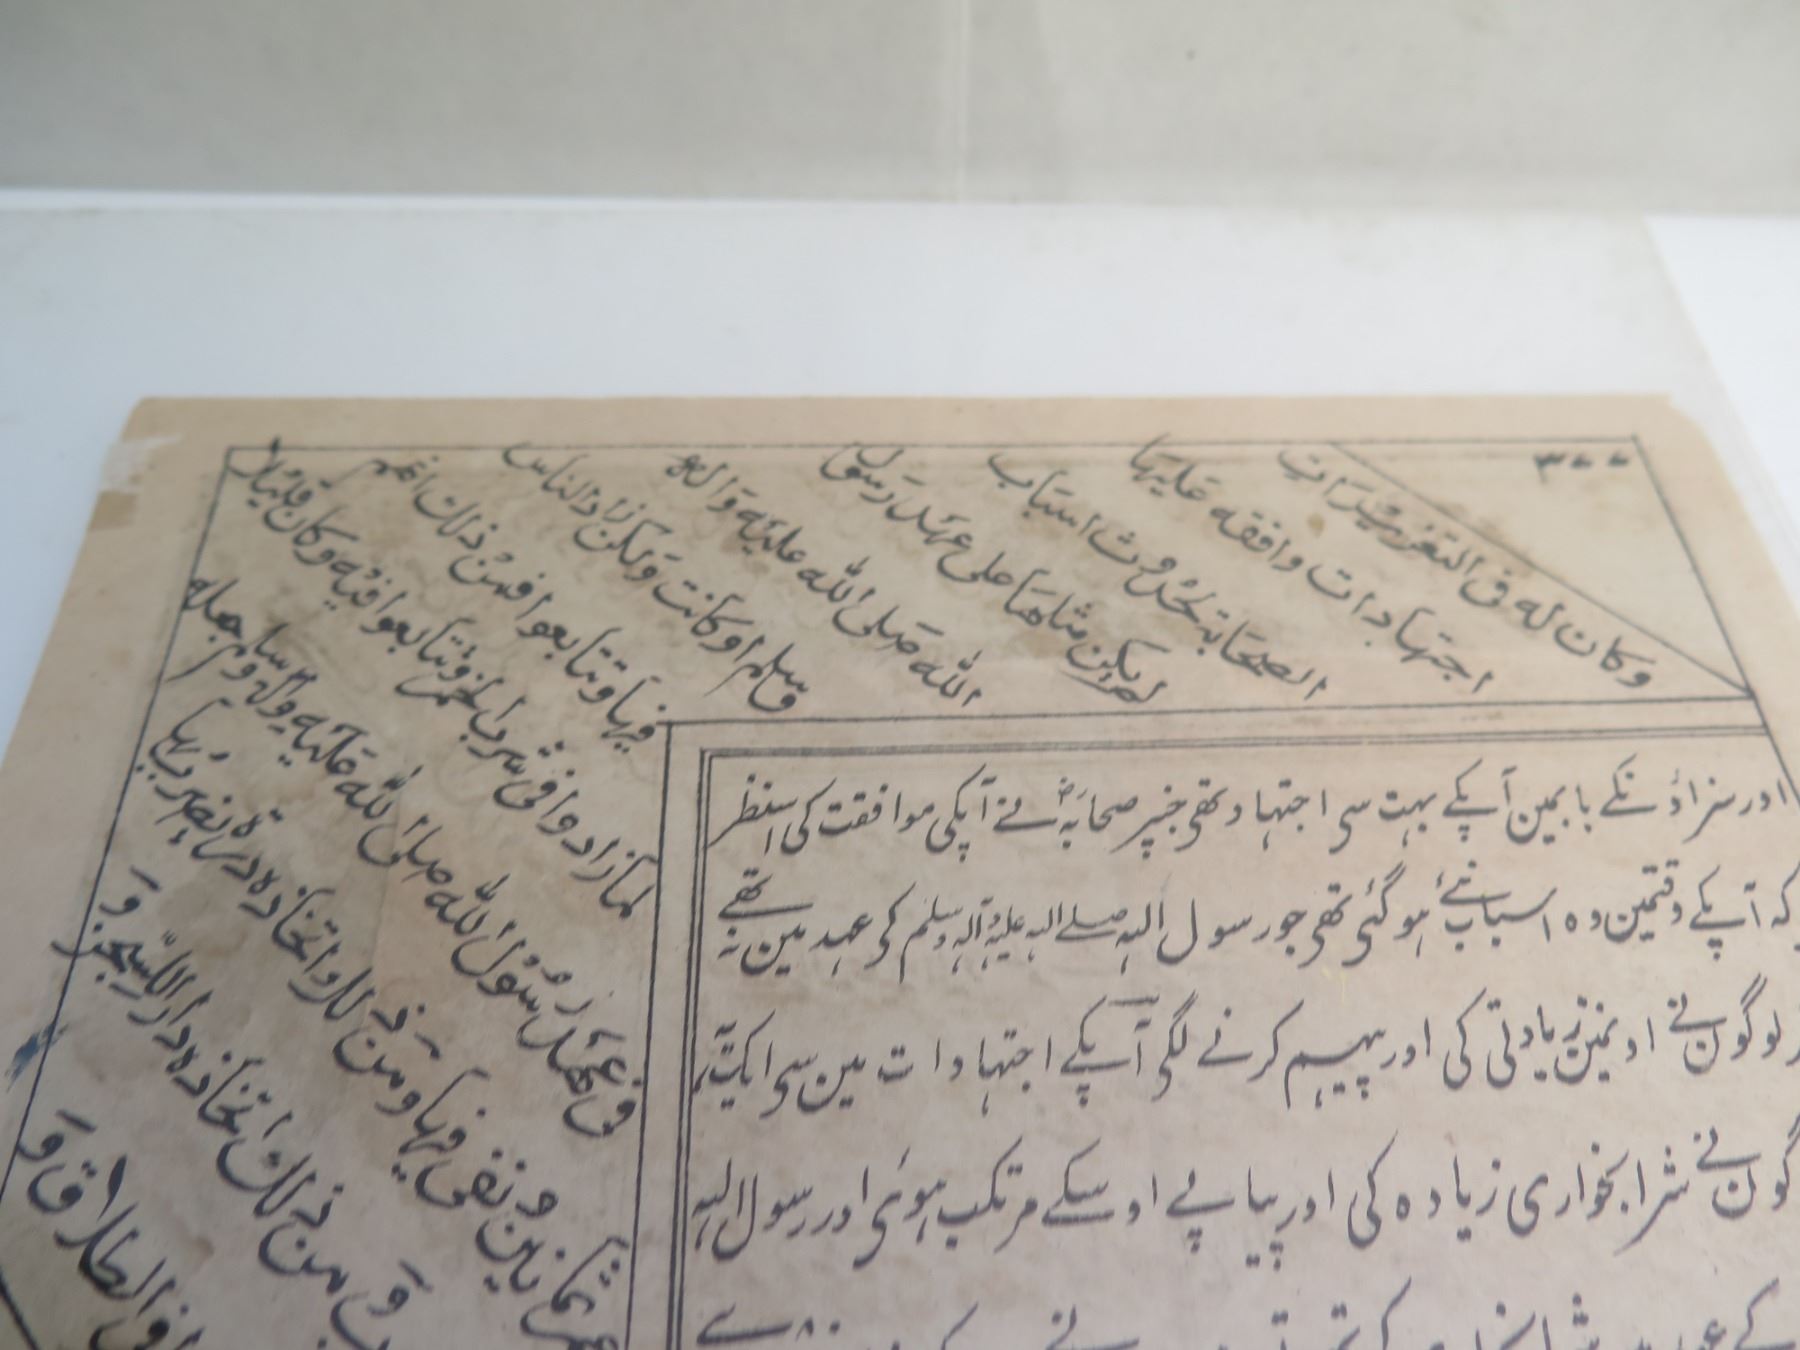 ٣٧٧
وكان له فى التعزيرات
اجتهادات وافقه عليها
الصحابة لحدوث اسباب
لم يكن مثلها على عهد رسول
الله صلى الله عليه واله
وسلم او كانت ولكن زاد الناس
فيها وتتابعوا فمن ذلك انهم
لما زادوا فى شرب الخمر وتتابعوا فيه وكان قليلا
فى عهد رسول الله صلى الله عليه واله وسلم جعله
ثمانين ونفى فيها ومن ذلك اتخاذه درة يضرب بها
ومن ذلك اتخاذه دارا للسجن و
الطلاق و
اور سزاؤنکے بابمین آپکے بہت سی اجتہاد تھی جنپر صحابہ نے آپکی موافقت کی اسنظر
کہ آپکے وقتمین وہ اسباب نئے ہوگئی تھی جو رسول اللہ صلے اللہ علیہ وآلہ وسلم کی عہد مین نہ تھے
لوگون نے اونمین زیادتی کی اور پیہم کرنے لگی آپکے اجتہادات مین سی ایک
گون نے شرابخواری زیادہ کی اور پیاپے اوسکے مرتکب ہوئی اور رسول اللہ